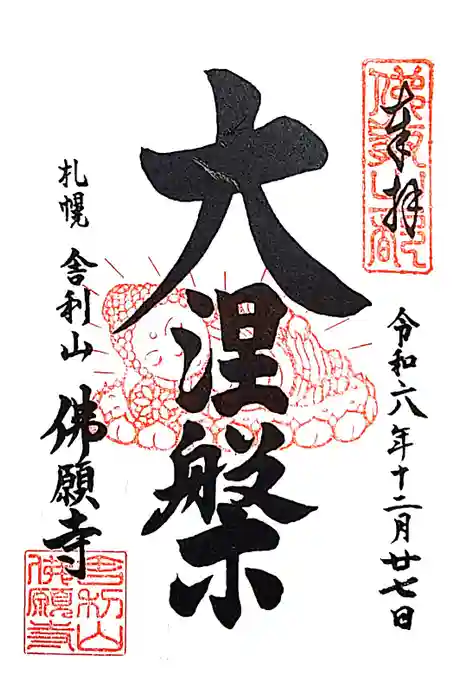 奉拝
令和六八年十二月廿七日
大涅槃
札幌 舎利山 佛願寺
舎利山
佛願寺